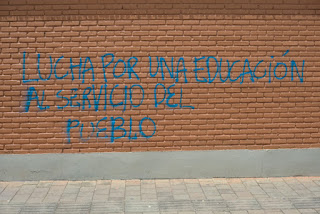 LUCHA POR UNA EDUCACIÓN
AL SERVICIO DEL
PUEBLO